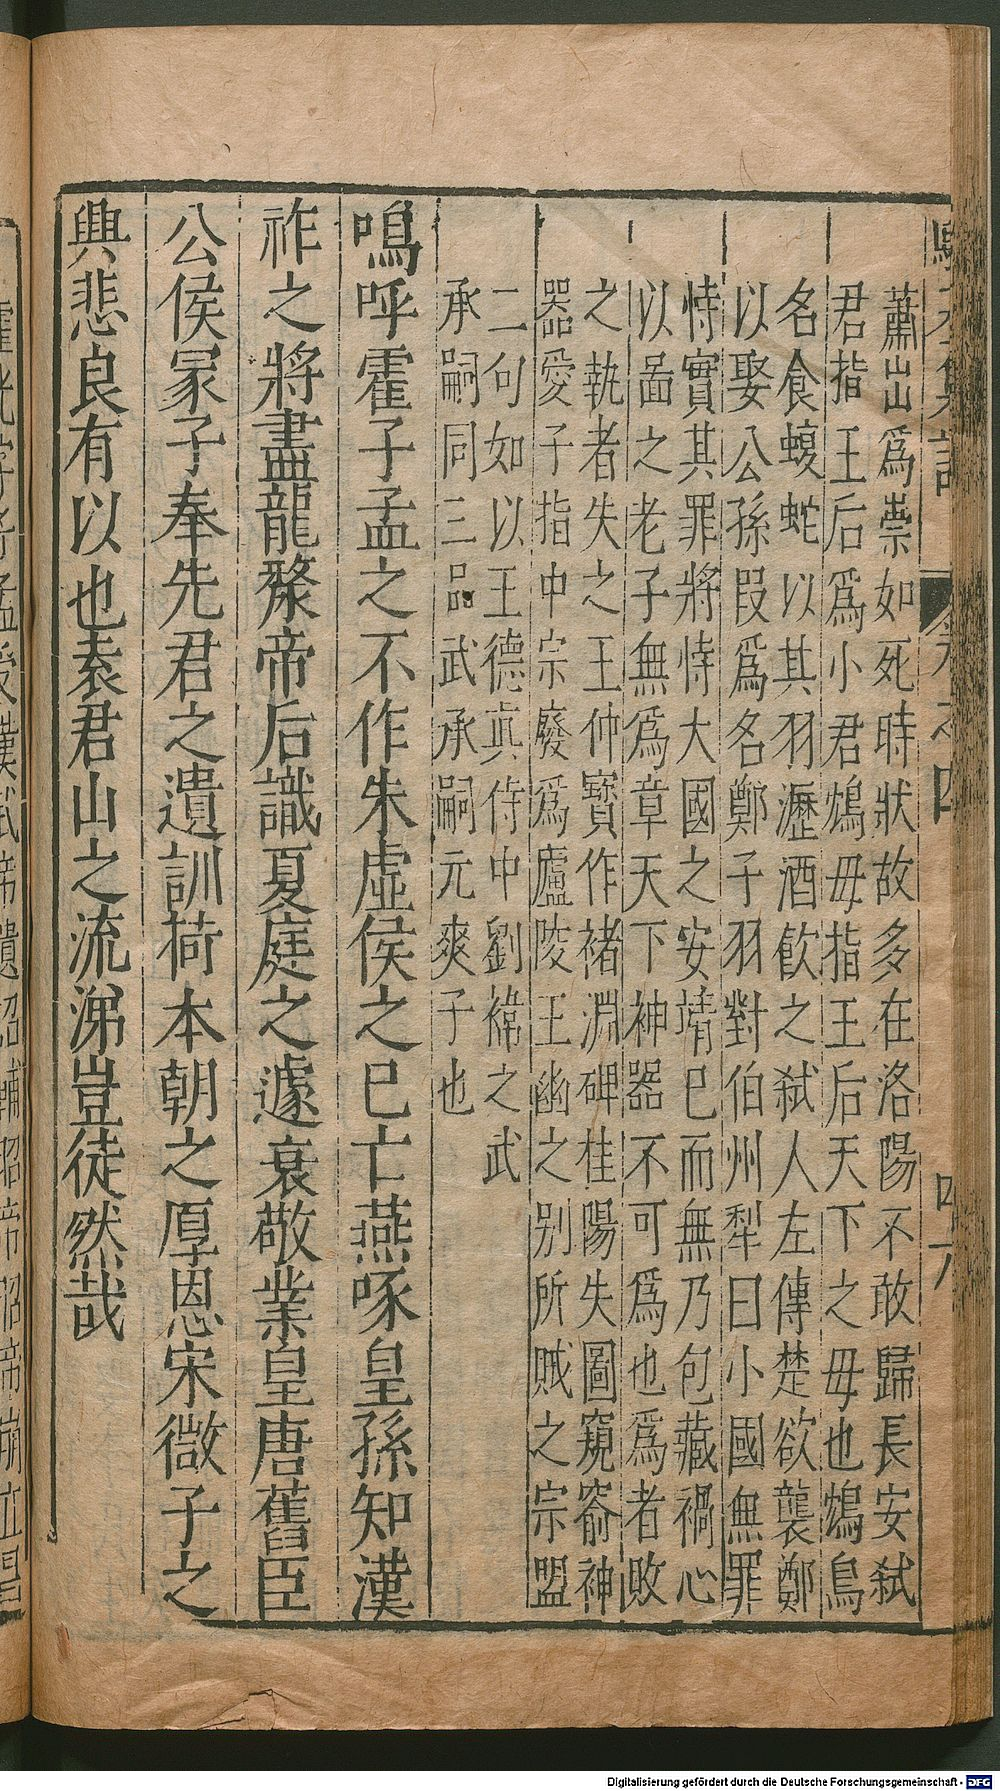 蕭岀為祟如死時狀故多在洛陽不敢歸長安弑
君指王后為小君鴆毋指王后天下之毋也鴆鳥
名食蝮蛇以其羽瀝酒飲之弑人左傳楚欲襲鄭
以娶公孫叚為名鄭子羽對伯州犁曰小國無罪
恃實其罪將恃大國之安靖已而無乃包藏禍心
以啚之老子無為章天下神器不可為也為者敗
之執者失之王仲寶作褚淵碑桂陽失圖窺窬神
器愛子指中宗廢為廬陵王幽之别所賊之宗盟
二句如以王德真侍中劉褘之武
承嗣同三品武承嗣元爽子也
嗚呼霍子孟之不作朱虛侯之已亡燕啄皇孫知漢
祚之將盡龍漦帝后識夏庭之遽衰敬業皇唐舊臣
公侯冡子奉先君之遺訓荷本朝之厚恩宋微子之
興悲良有以也袁君山之流涕豈徒然哉
四十八
Digitalisierung gefördert durch die Deutsche Forschungsgemeinschaft - DFG